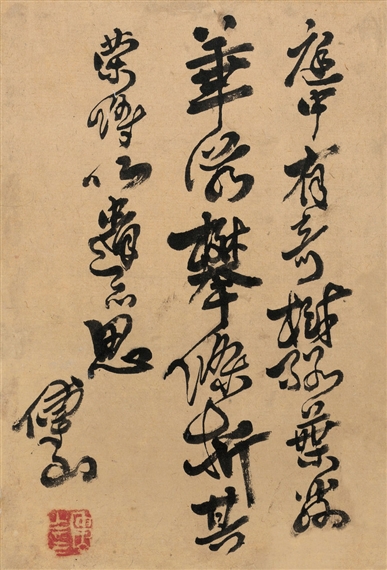 庭中有奇樹綠葉發
華滋攀條折其
榮將以遺所思
傅山